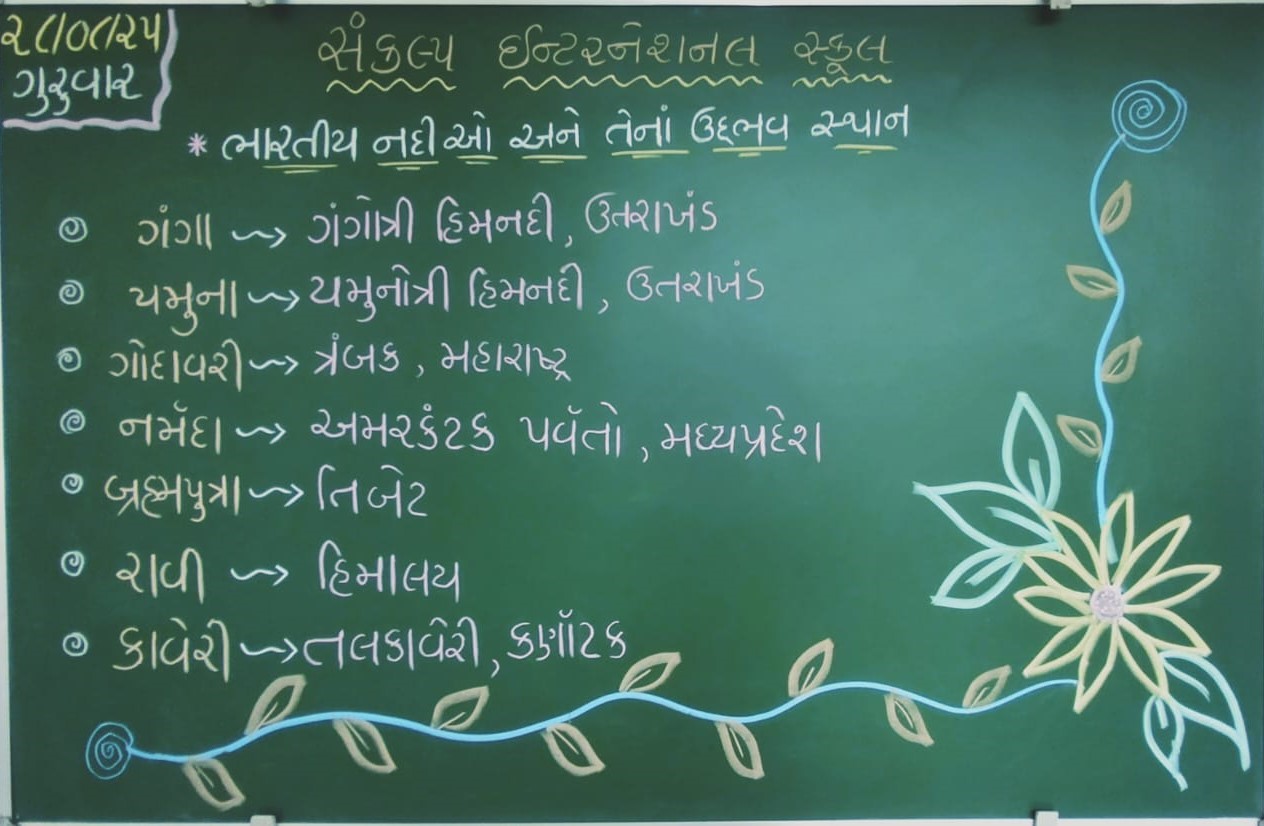 ૨૮/૦૮/૨૫
ગુરુવાર
સંકલ્પ ઈન્ટરનેશનલ સ્કૂલ
* ભારતીય નદીઓ અને તેનાં ઉદ્દભવ સ્થાન
ગંગા → ગંગોત્રી હિમનદી, ઉતરાખંડ
યમુના → યમુનોત્રી હિમનદી, ઉતરાખંડ
ગોદાવરી → ત્રંબક, મહારાષ્ટ્ર
નર્મદા → અમરકંટક પર્વતો, મધ્યપ્રદેશ
બ્રહ્મપુત્રા → તિબેટ
રાવી → હિમાલય
કાવેરી → તલકાવેરી, કર્ણાટક